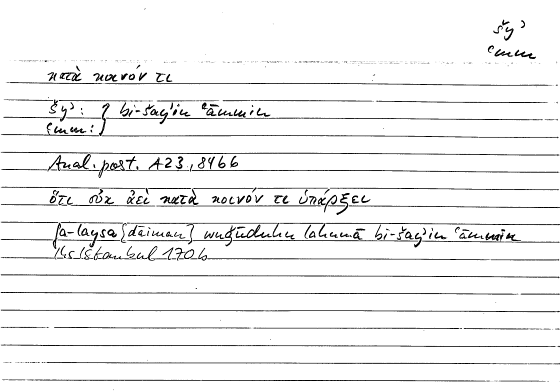 šyʾ
ʿmm
κατὰ κοινόν τι
šyʾ: } bi-šayʾin ʿāmmin
ʿmm: }
Anal. post. A23, 84b6
ὅτι οὐκ ἀεὶ κατὰ κοινόν τι ὑπάρξει
fa-laysa {dāiman} wuǧūduhu lahumā bi-šayʾin ʿāmmin
Hs Istanbul 170b